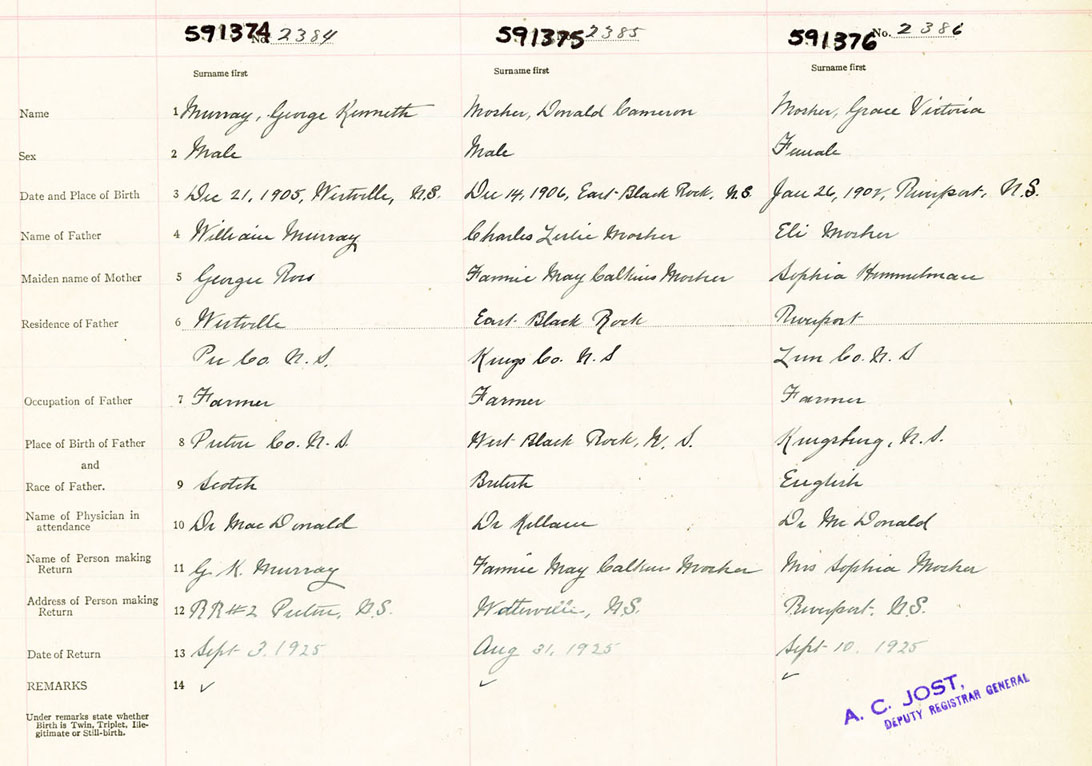 591374 No. 2384 591375 2385 591376 No. 2386
Surname first Surname first Surname first
Name 1 Murray, George Kenneth Mosher, Donald Cameron Mosher, Grace Victoria
Sex 2 Male Male Female
Date and Place of Birth 3 Dec 21, 1905, Westville, N.S. Dec 14, 1906, East Black Rock, N.S. Jan 26, 190 Riverport, N.S.
Name of Father 4 William Murray Charles Leslie Mosher Eli Mosher
Maiden name of Mother 5 Georgie Ross Fannie May Calkins Mosher Sophia Himmelman
Residence of Father 6 Westville East Black Rock Riverport
Co. N.S. Kings Co. N.S Lun Co. N.S
Occupation of Father 7 Farmer Farmer Farmer
Place of Birth of Father 8 Pictou Co. N.S West Black Rock, N.S. Kingsburg, N.S.
and
Race of Father. 9 Scotch British English
Name of Physician in
attendance 10 Dr MacDonald Dr Killam Dr McDonald
Name of Person making
Return 11 G. K. Murray Fannie May Calkins Mosher Mrs Sophia Mosher
Address of Person making
Return 12 RR#2 Pictou, N.S. Waterville, N.S. Riverport, N.S.
Date of Return 13 Sept 3, 1925 Aug 31, 1925 Sept 10, 1925
REMARKS 14 ✓ ✓ ✓
Under remarks state whether
Birth is Twin, Triplet, Ille-
gitimate or Still-birth.
A. C. JOST,
DEPUTY REGISTRAR GENERAL